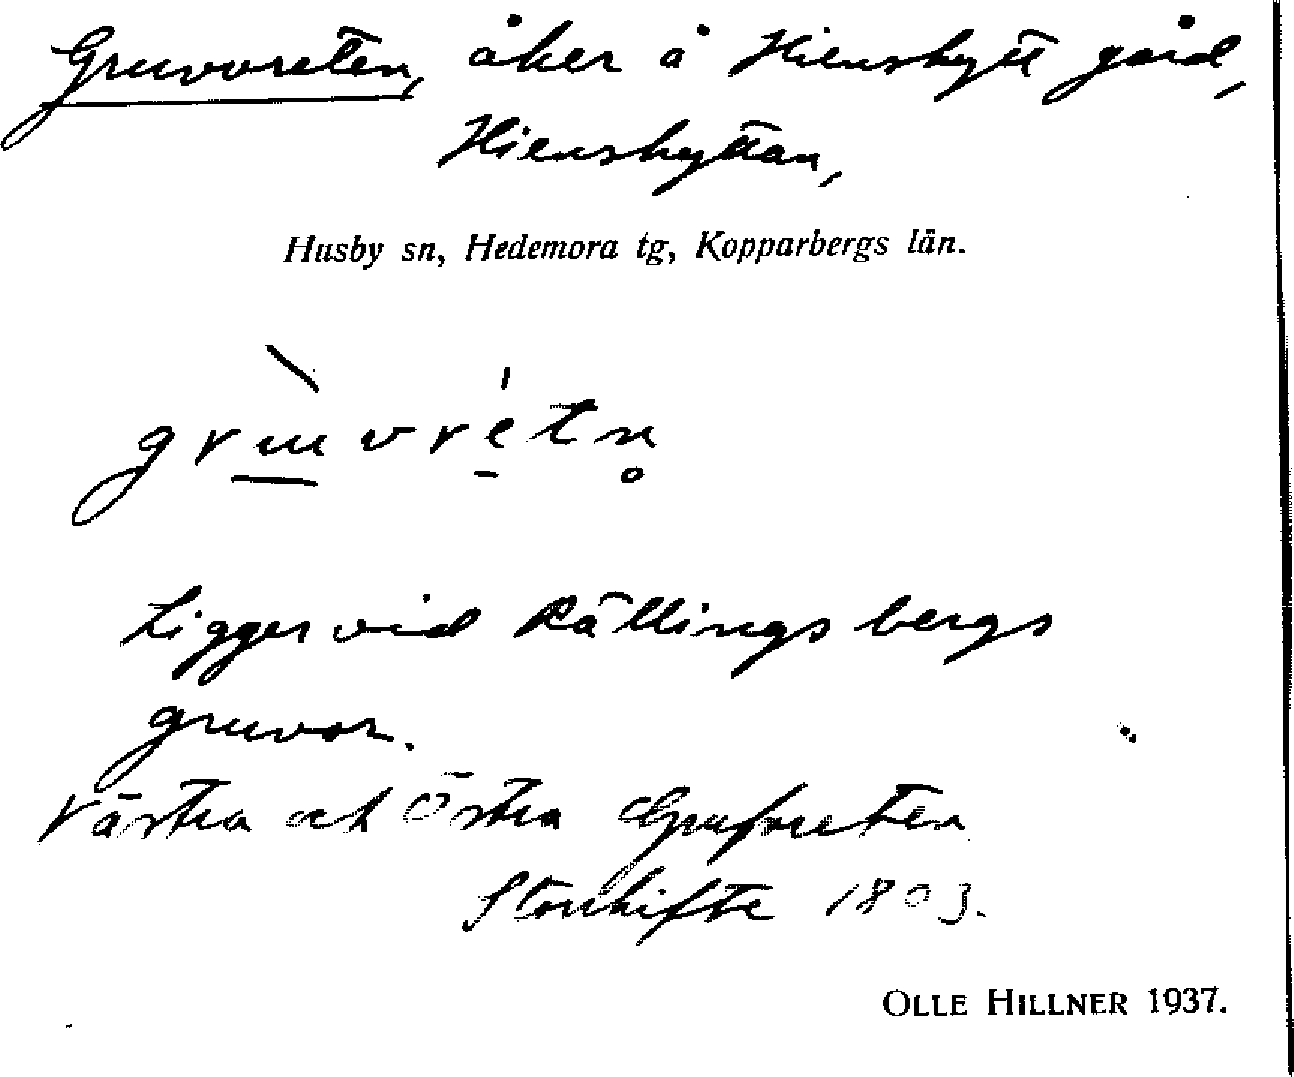 Gruvvreten, åker å Hienshytt gård,
Hienshyttan,
Husby sn, Hedemora tg, Kopparbergs län.
grùvvrétn̥
Ligger vid Rällingsbergs
gruvor.
Västra och Östra Grufvreten
Storskifte 1803.
OLLE HILLNER 1937.